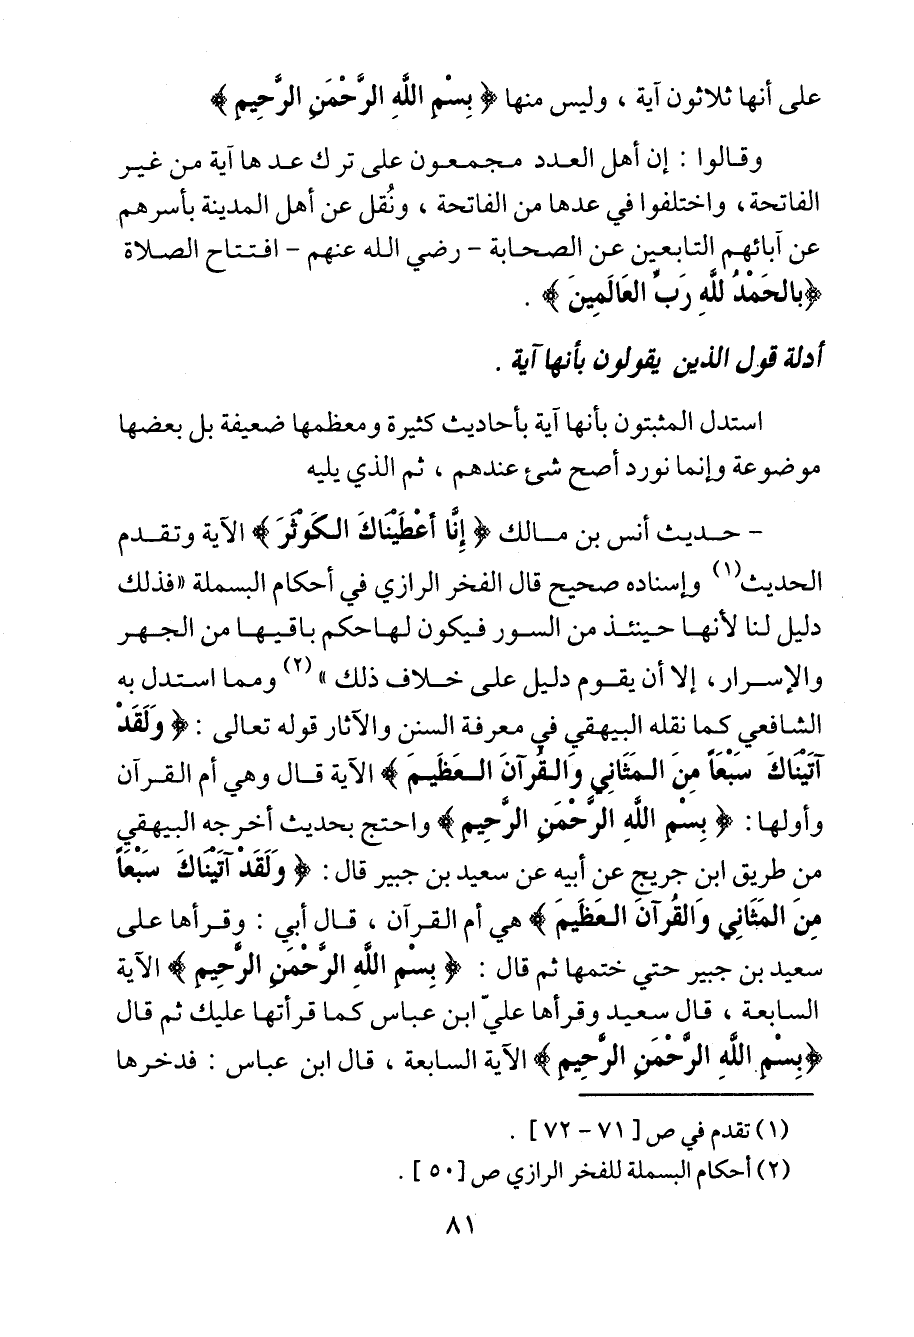 على أنها ثلاثون آية ، وليس منها ﴿ بِسْمِ اللَّهِ الرَّحْمَنِ الرَّحِيمِ ﴾
وقالوا : إن أهل العدد مجمعون على ترك عدها آية من غير
الفاتحة، واختلفوا في عدها من الفاتحة ، ونُقل عن أهل المدينة بأسرهم
عن آبائهم التابعين عن الصحابة - رضي الله عنهم - افتتاح الصلاة
﴿بالحَمْدُ للَّهِ رَبِّ العَالَمِينَ ﴾ .
أدلة قول الذين يقولون بأنها آية .
استدل المثبتون بأنها آية بأحاديث كثيرة ومعظمها ضعيفة بل بعضها
موضوعة وإنما نورد أصح شئ عندهم ، ثم الذي يليه
- حديث أنس بن مالك ﴿ إِنَّا أَعْطَيْنَاكَ الكَوْثَرَ ﴾ الآية وتقدم
الحديث(١) وإسناده صحيح قال الفخر الرازي في أحكام البسملة «فذلك
دليل لنا لأنها حينئذ من السور فيكون لهاحكم باقيها من الجهر
والإسرار، إلا أن يقوم دليل على خلاف ذلك »(٢) ومما استدل به
الشافعي كما نقله البيهقي في معرفة السنن والآثار قوله تعالى : ﴿ وَلَقَدْ
آتَيْنَاكَ سَبْعَاً مِنَ المَثَانِي وَالقُرآنَ العَظِيمَ ﴾ الآية قال وهي أم القرآن
وأولها: ﴿ بِسْمِ اللَّهِ الرَّحْمَنِ الرَّحِيمِ ﴾ واحتج بحديث أخرجه البيهقي
من طريق ابن جريج عن أبيه عن سعيد بن جبير قال: ﴿ وَلَقَدْ آتَيْنَاكَ سَبْعَاً
مِنَ المَثَانِي وَالقُرآنَ العَظِيمَ ﴾ هي أم القرآن ، قال أبي : وقرأها على
سعيد بن جبير حتي ختمها ثم قال : ﴿ بِسْمِ اللَّهِ الرَّحْمَنِ الرَّحِيمِ ﴾ الآية
السابعة ، قال سعيد وقرأها عليّ ابن عباس كما قرأتها عليك ثم قال
﴿بِسْمِ اللَّهِ الرَّحْمَنِ الرَّحِيمِ ﴾ الآية السابعة ، قال ابن عباس : فدخرها
(١) تقدم في ص [ ٧١ - ٧٢ ] .
(٢) أحكام البسملة للفخر الرازي ص [ ٥٠ ] .
٨١